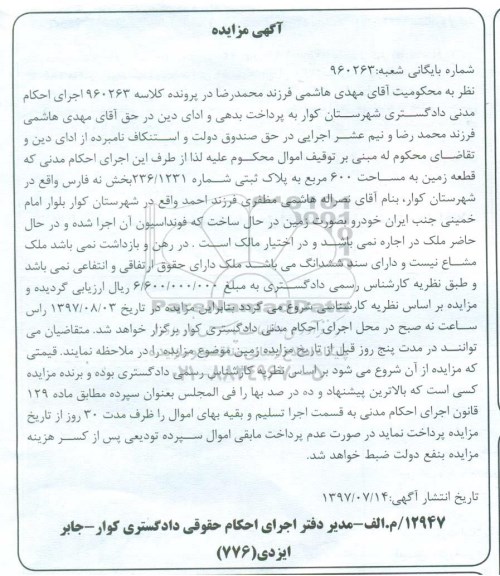 آگهی مزایده
شماره بایگانی شعبه:۹۶۰۲۶۳
نظر به محکومیت آقای مهدی هاشمی فرزند محمدرضا در پرونده کلاسه ۹۶۰۲۶۳ اجرای احکام
مدنی دادگستری شهرستان کوار به پرداخت بدهی و ادای دین در حق آقای مهدی هاشمی
فرزند محمد رضا و نیم عشر اجرایی در حق صندوق دولت و استنکاف نامبرده از ادای دین و
تقاضای محکوم له مبنی بر توقیف اموال محکوم علیه لذا از طرف این اجرای احکام مدنی که
قطعه زمین به مساحت ۶۰۰ مربع به پلاک ثبتی شماره ۲۳۶/۱۲۳۱بخش نه فارس واقع در
شهرستان کوار، بنام آقای نصراله هاشمی مظفری فرزند احمد واقع در شهرستان کوار بلوار امام
خمینی جنب ایران خودرو بصورت زمین در حال ساخت که فونداسیون آن اجرا شده و در حال
حاضر ملک در اجاره نمی باشد و در اختیار مالک است . در رهن و بازداشت نمی باشد ملک
مشاع نیست و دارای سند ششدانگ می باشد ملک دارای حقوق ارتفاقی و انتفاعی نمی باشد
و طبق نظریه کارشناس رسمی دادگستری به مبلغ ۶/۶۰۰/۰۰۰/۰۰۰ ریال ارزیابی گردیده و
مزایده بر اساس نظریه کارشناسی شروع می گردد بنابراین مزایده در تاریخ ۱۳۹۷/۰۸/۰۳ راس
ساعت نه صبح در محل اجرای احکام مدنی دادگستری کوار برگزار خواهد شد. متقاضیان می
توانند در مدت پنج روز قبل از تاریخ مزایده زمین موضوع مزایده را در ملاحظه نمایند. قیمتی
که مزایده از آن شروع می شود بر اساس نظریه کارشناس رسمی دادگستری بوده و برنده مزایده
کسی است که بالاترین پیشنهاد و ده در صد بها را فی المجلس بعنوان سپرده مطابق ماده ۱۲۹
قانون اجرای احکام مدنی به قسمت اجرا تسلیم و بقیه بهای اموال را ظرف مدت ۳۰ روز از تاریخ
مزایده پرداخت نماید در صورت عدم پرداخت مابقی اموال سپرده تودیعی پس از کسر هزینه
مزایده بنفع دولت ضبط خواهد شد.
تاریخ انتشار آگهی:۱۳۹۷/۰۷/۱۴
۱۲۹۴۷/م.الف-مدیر دفتر اجرای احکام حقوقی دادگستری کوار-جابر
ایزدی(۷۷۶)